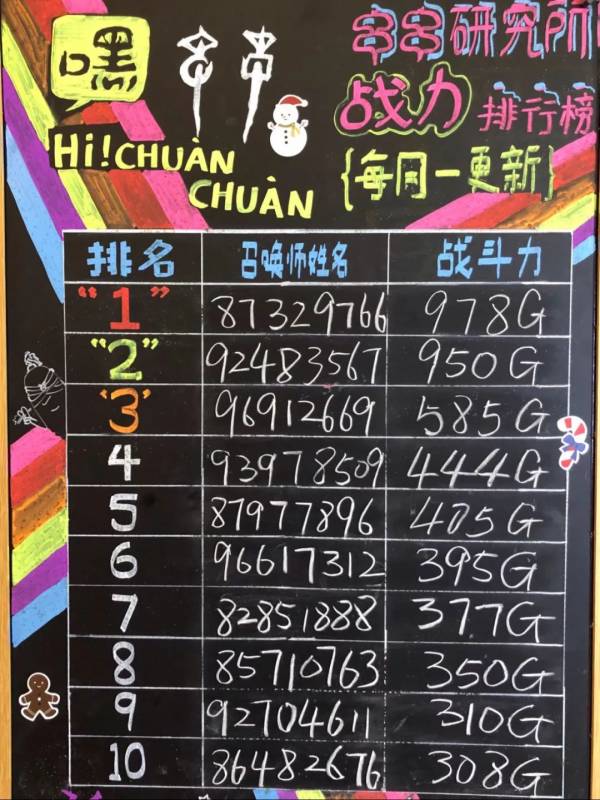 嘿 串串
Hi! CHUÀN
CHUÀN
串串研究所
战力 排行榜
{每周一更新}
排名 召唤师姓名 战斗力
"1" 87329766 978G
"2" 92483567 950G
'3' 96912669 585G
4 93978509 444G
5 87977896 405G
6 96617312 395G
7 82851888 377G
8 85710763 350G
9 92704611 310G
10 86482676 308G